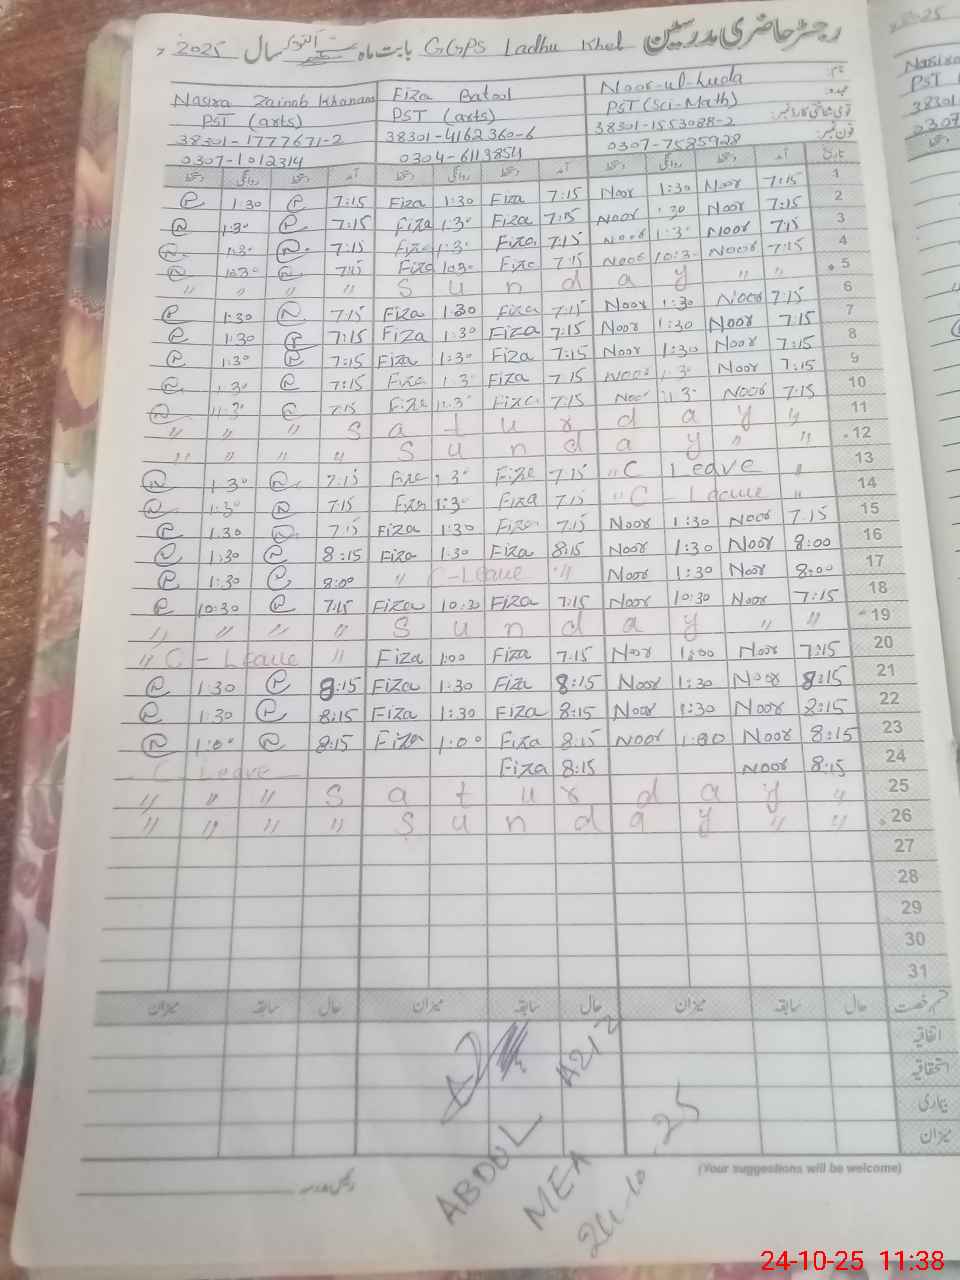 رجسٹر حاضری مدرسین GGPS Ladhu Khel بابت ماہ اکتوبر سال 2025
Nasira Zainab Khanam Fiza Batool Noor-ul-huda نام:
PST (arts) PST (arts) PST (Sci-Math) عہدہ
38301-1777671-2 38301-4162360-6 38301-1553088-2 قومی شناختی کارڈ نمبر:
0307-1012314 0304-6113854 0307-7585928 فون نمبر:
دستخط روانگی دستخط آمد دستخط روانگی دستخط آمد دستخط روانگی دستخط آمد تاریخ
1:30 7:15 Fiza 1:30 Fiza 7:15 Noor 1:30 Noor 7:15 1
1:30 7:15 Fiza 1:30 Fiza 7:15 Noor 1:30 Noor 7:15 2
1:30 7:15 Fiza 1:30 Fiza 7:15 Noor 1:30 Noor 7:15 3
10:30 7:15 Fiza 10:30 Fiza 7:15 Noor 10:30 Noor 7:15 4
" " " " S u n d a y " " 5
1:30 7:15 Fiza 1:30 Fiza 7:15 Noor 1:30 Noor 7:15 6
1:30 7:15 Fiza 1:30 Fiza 7:15 Noor 1:30 Noor 7:15 7
1:30 7:15 Fiza 1:30 Fiza 7:15 Noor 1:30 Noor 7:15 8
1:30 7:15 Fiza 1:30 Fiza 7:15 Noor 1:30 Noor 7:15 9
11:30 7:15 Fiza 11:30 Fiza 7:15 Noor 11:30 Noor 7:15 10
" " " S a t u r d a y " 11
" " " " S u n d a y " " 12
1:30 7:15 Fiza 1:30 Fiza 7:15 " C Leave " 13
1:30 7:15 Fiza 1:30 Fiza 7:15 " C - Leave " 14
1:30 7:15 Fiza 1:30 Fiza 7:15 Noor 1:30 Noor 7:15 15
1:30 8:15 Fiza 1:30 Fiza 8:15 Noor 1:30 Noor 8:00 16
1:30 8:00 " C-Leave " Noor 1:30 Noor 8:00 17
10:30 7:15 Fiza 10:30 Fiza 7:15 Noor 10:30 Noor 7:15 18
" " " " S u n d a y " " 19
" C - Leave " Fiza 1:00 Fiza 7:15 Noor 1:00 Noor 7:15 20
1:30 8:15 Fiza 1:30 Fiza 8:15 Noor 1:30 Noor 8:15 21
1:30 8:15 Fiza 1:30 Fiza 8:15 Noor 1:30 Noor 8:15 22
1:00 8:15 Fiza 1:00 Fiza 8:15 Noor 1:00 Noor 8:15 23
C Leave Fiza 8:15 Noor 8:15 24
" " " S a t u r d a y " 25
" " " " S u n d a y " " 26
27
28
29
30
31
میزان سابقہ حال میزان سابقہ حال میزان سابقہ حال قسم رخصت
اتفاقیہ
استحقاقیہ
بیماری
میزان
ABDUL AZIZ
MEA
24-10-25
(Your suggestions will be welcome)
24-10-25 11:38